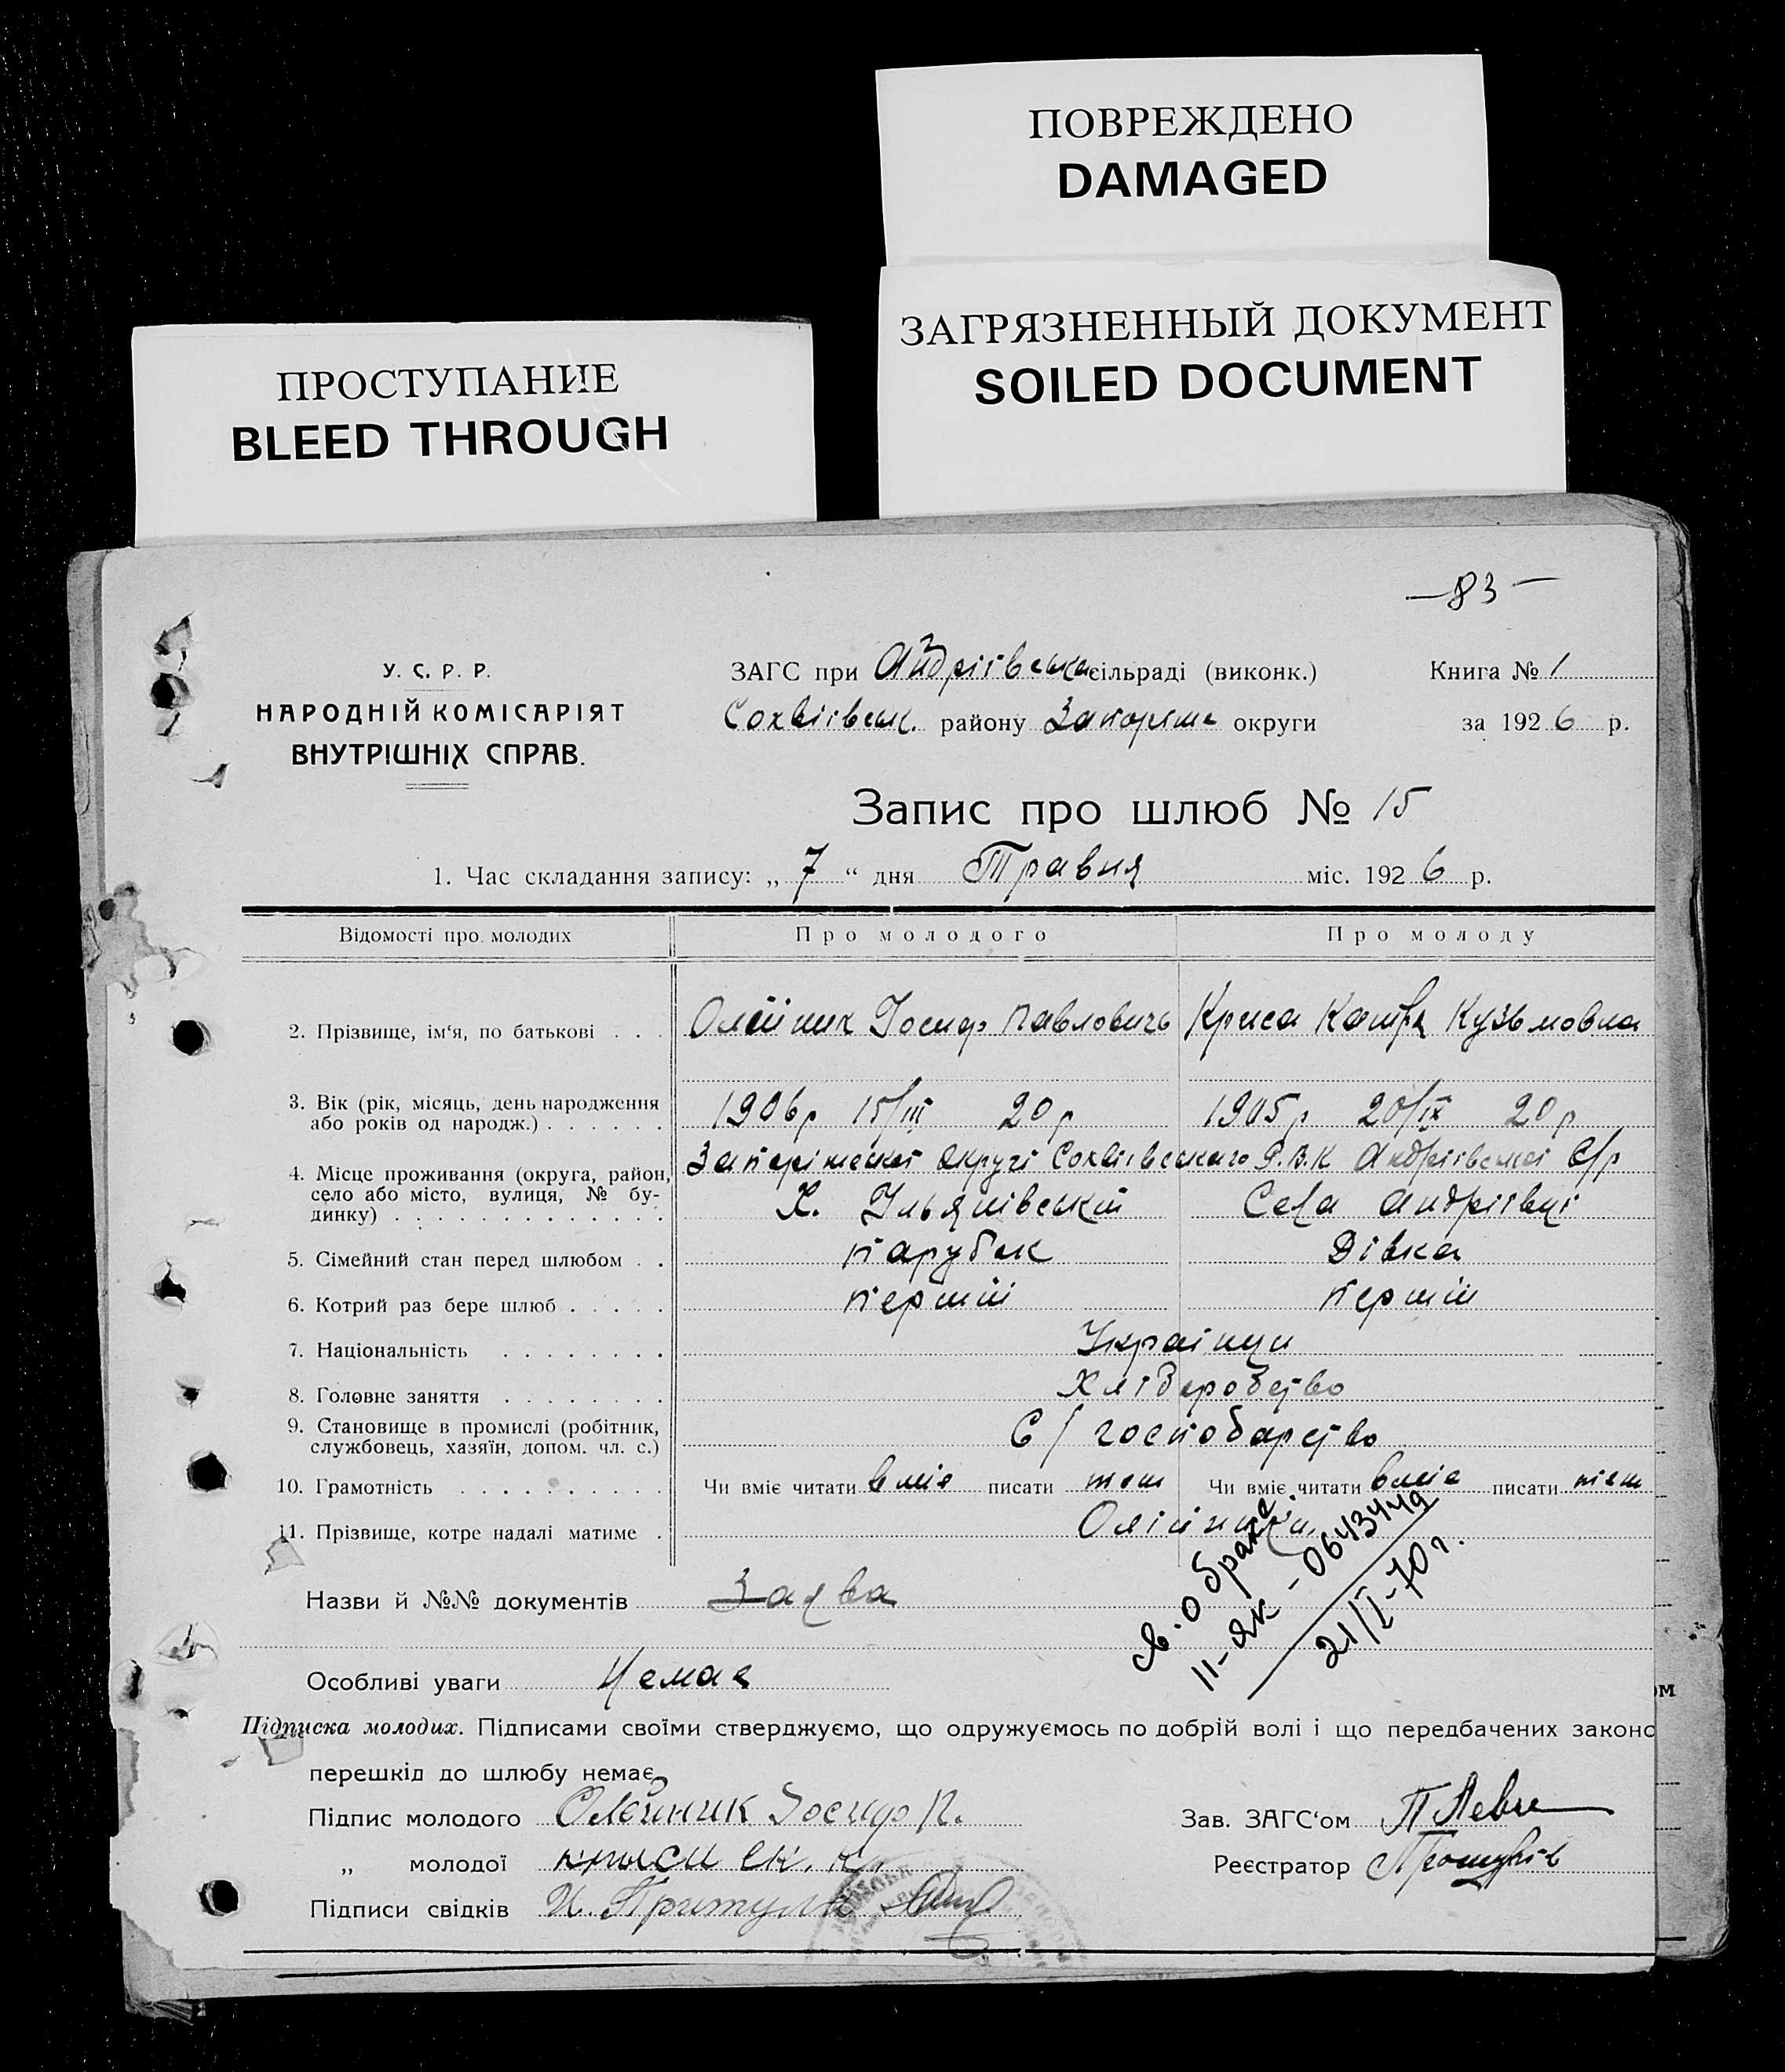 ПОВРЕЖДЕНО
DAMAGED
ЗАГРЯЗНЕННЫЙ ДОКУМЕНТ
SOILED DOCUMENT
ПРОСТУПАНИЕ
BLEED THROUGH
— 83 —
У. С. Р. Р.
НАРОДНІЙ КОМІСАРІЯТ
ВНУТРІШНІХ СПРАВ.
ЗАГС при Андріївська сільраді (виконк.)
Книга № 1
Сохвіївськ. району Запоріжс округи
за 1926 р.
Запис про шлюб № 15
1. Час складання запису: „ 7 “ дня Травня міс. 1926 р.
Відомості про молодих Про молодого Про молоду
2. Прізвище, ім‘я, по батькові . . . Олейник Іосиф Павловичь Криса Катря Кузьмовна
3. Вік (рік, місяць, день народження
або років од народж.) . . . . . . 1906р 15/III 20р 1905р 20/IX 20р
4. Місце проживання (округа, район, Запоріжської округі Сохвіївського Р.В.К Андріївської С/р
село або місто, вулиця, № бу-
динку) . . . . . . . . . . . . . Х. Ульянівській Села Андріївці
5. Сімейний стан перед шлюбом . . парубок Дівка
6. Котрий раз бере шлюб . . . . . першій першій
7. Національність . . . . . . . . Українци
8. Головне заняття . . . . . . . . Хліборобство
9. Становище в промислі (робітник,
службовець, хазяїн, допом. чл. с.) С/господарство
10. Грамотність . . . . . . . . . . Чи вміє читати вміє писати теш Чи вміє читати вміє писати теш
11. Прізвище, котре надалі матиме .
Св. о браке
II-ЯК - 0643449
21/I-70г.
Назви й №№ документів Заява
Особливі уваги Немає
Підписка молодих. Підписами своїми стверджуємо, що одружуємось по добрій волі і що передбачених законо
ом
перешкід до шлюбу немає.
Підпис молодого Олейник Іосиф П.
Зав. ЗАГС‘ом
„ молодої
Реєстратор
Підписи свідків И. Притула